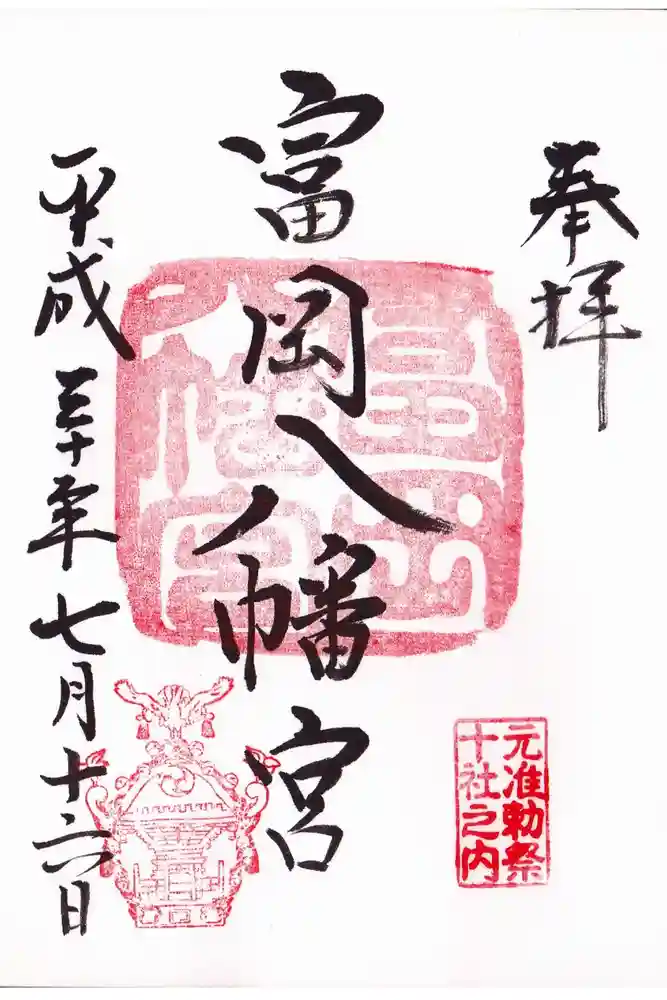 奉拝
元准勅祭
十社之内
富岡八幡宮
平成三十年七月十六日